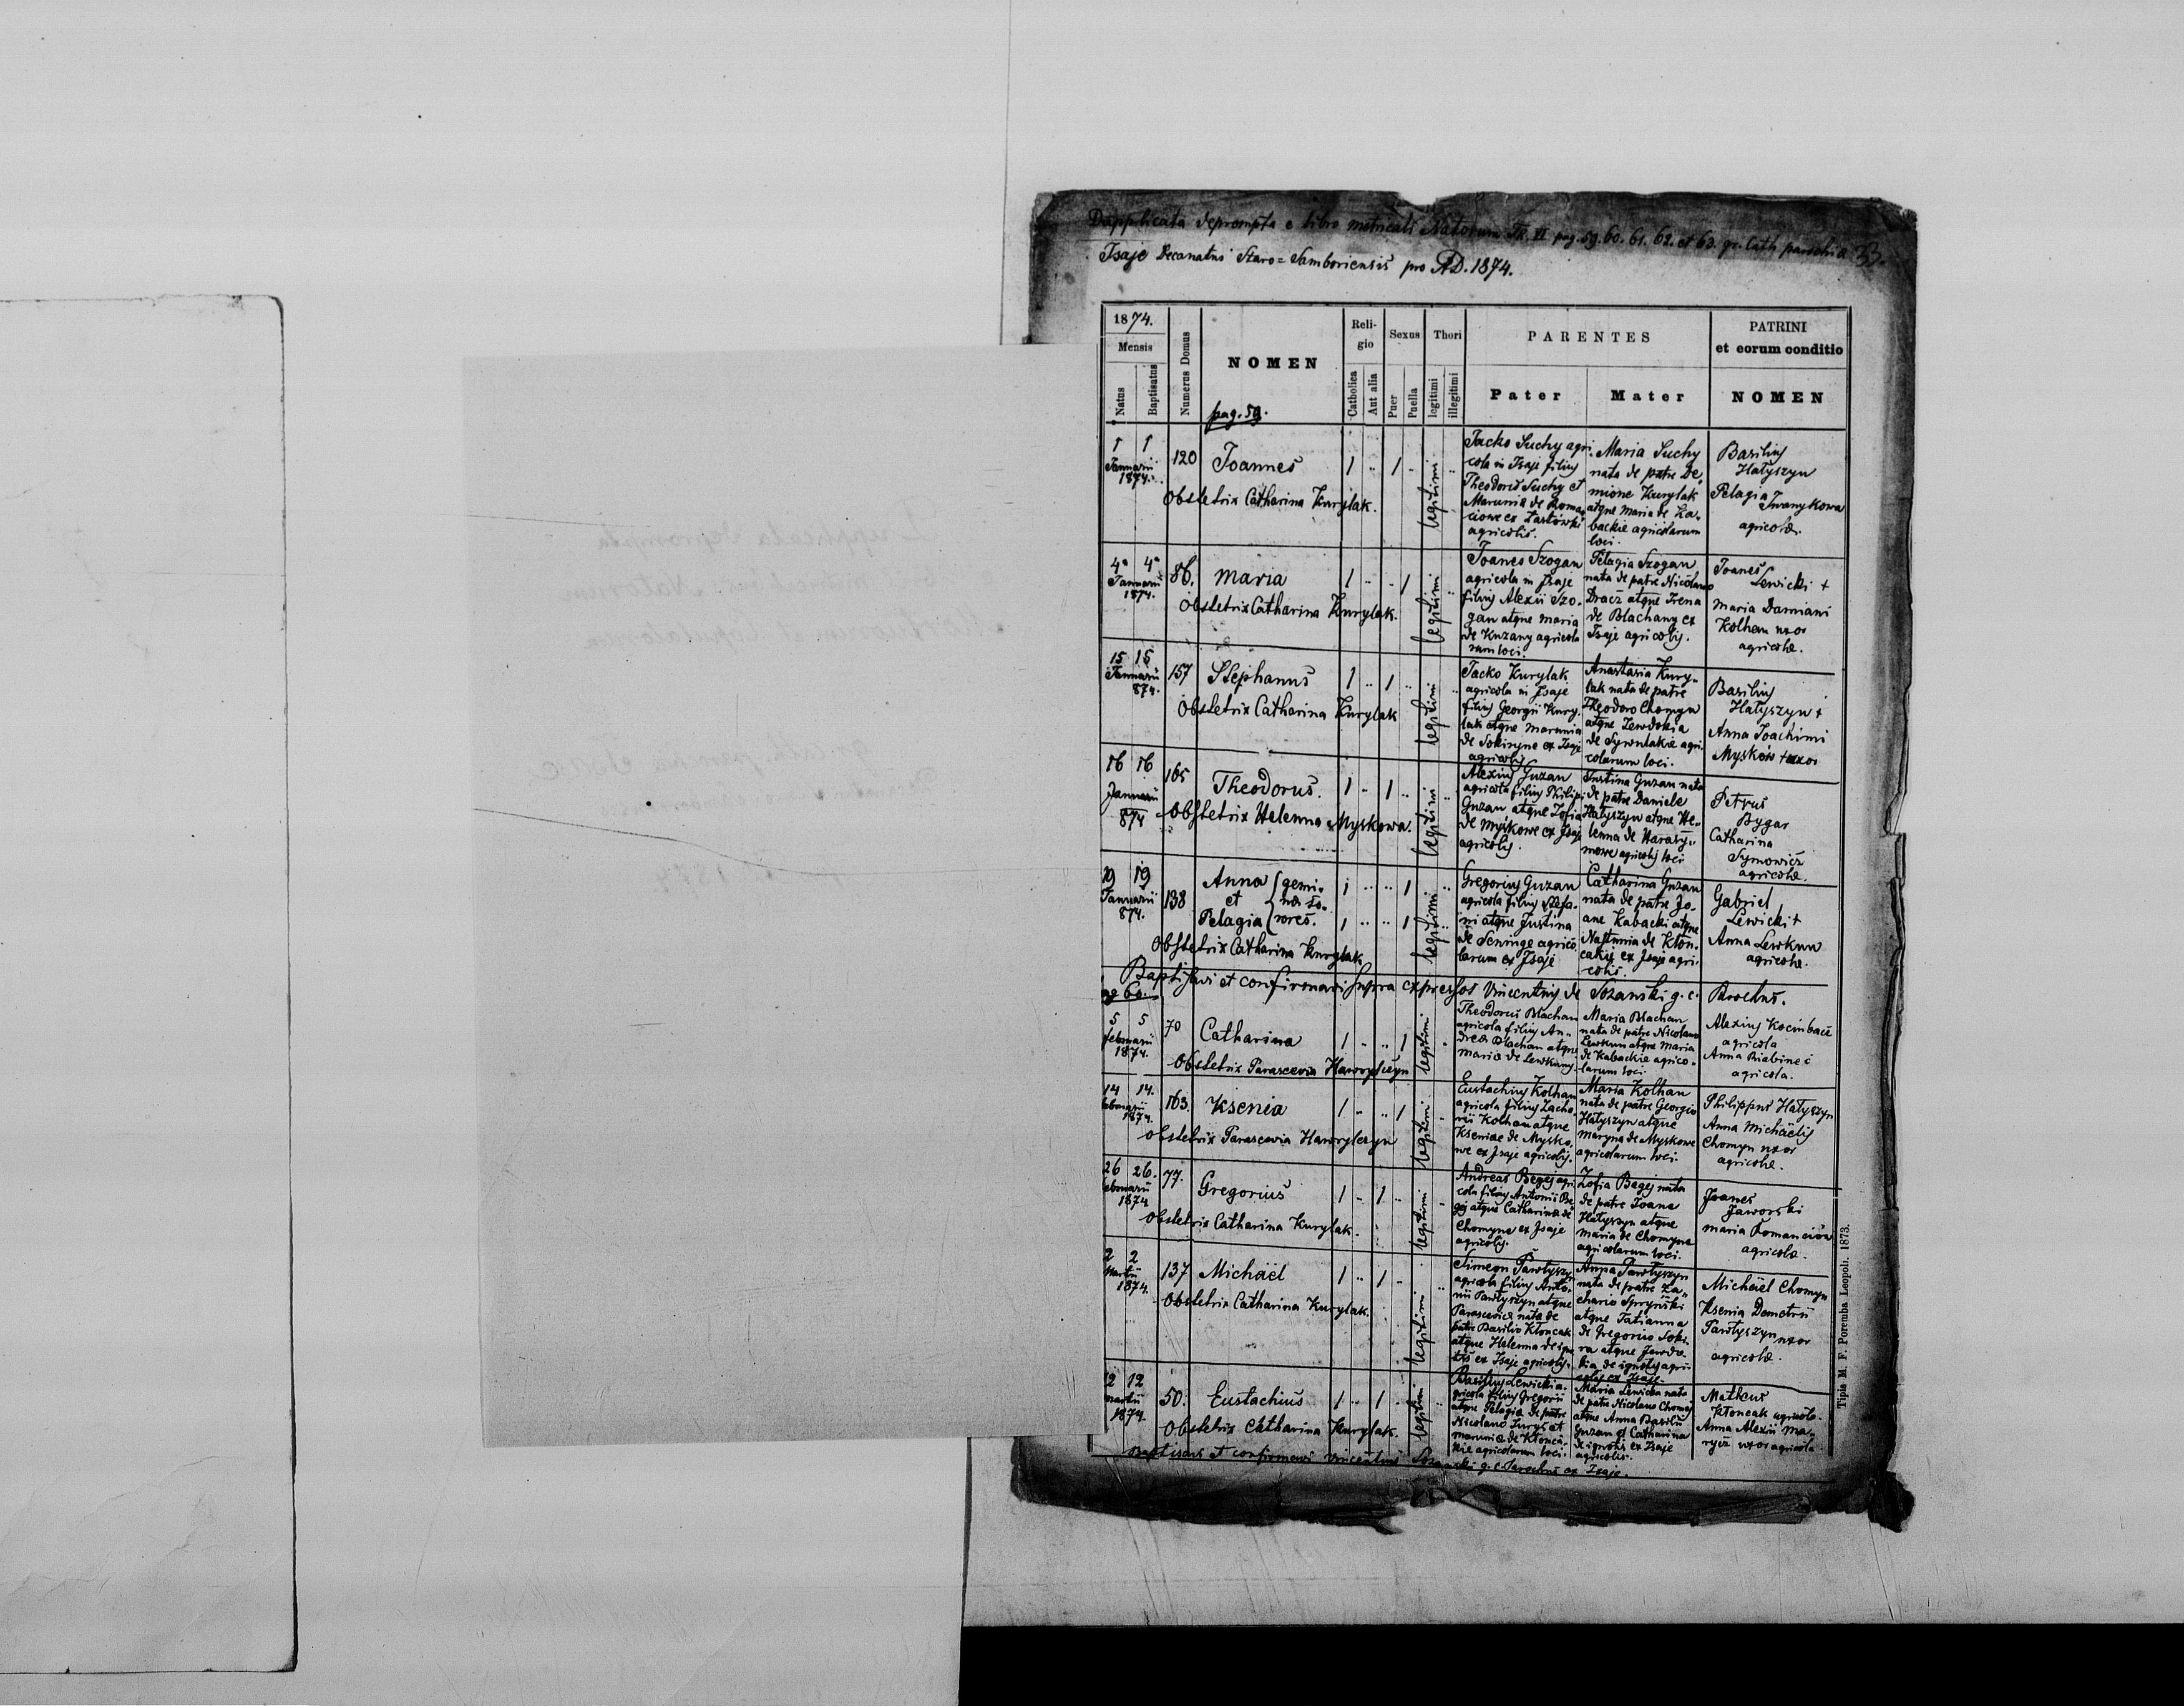 Dupplicata deprompta e libro metricali Natorum Tk. VI pag. 59. 60. 61. 62. et 63. gr. Cath parochia 33.
Isaje Decanatus Staro=Samboriensis pro AD. 1874.
1874.
Mensis
Natus
Baptisatus
Numerus Domus
NOMEN
pag. 59.
Religio
Catholica
Aut alia
Sexus
Puer
Puella
Thori
legitimi
illegitimi
PARENTES
Pater
Mater
PATRINI
et eorum conditio
NOMEN
1 1
Januarii
1874.
120
Joannes
Obstetrix Catharina Kurylak.
legitimi
Jacko Suchy agri
cola in Isaje filius
Theodori Suchy et
agricolis.
Maria Suchy
nata de patre De„
mione Kurylak
atque Maria de Ka„
backie agricolarum
loci.
Basilius
Hatyszyn
Pelagia Iwanykowa
agricolæ.
4a 4a
Januarii
1874.
86.
Maria
Obstetrix Catharina Kurylak.
legitimi
Joanes Szogan
agricola in Isaje
filius Alexii Szo.
gan atque Maria
de Kuzany agricola
rum loci.
Pelagia Szogan
nata de patre Nicolauo
Dracz atque Irena
de Błachany ex
Isaje agricolis.
Joanes
Lewicki +
Maria Damiani
Kolhan uxor
agricolæ.
15 15
Januarii
874.
157
Stephanus
Obstetrix Catharina Kurylak
legitimi
Jacko Kurylak
agricola in Isaje
filius Georgii Kury.
lak atque Marunia
de Sokiryne ex Isaje
agricolis
Anastasia Kury„
lak nata de patre
Theodoro Chomyn
atque Jewdokia
colarum loci.
Basilius
Hatyszyn +
Anna Joachimi
Myśków + uxor
16 16
Januarii
874
165
Theodorus.
Obstetrix Helenna Myskowa.
legitimi
Alexius Guzan
agricola filius Philipi
Guzan atque Zofia
de Myśkowe ex Isaje
agricolis.
Justina Guzan nata
de patre Daniele
Hatyszyn atque He„
lenna de Harasy„
mowe agricolis loci
Petrus
Bygar
Catharina
Symowicz
agricolæ.
19 19
Januarii
874.
138
Anna
et
Pelagia
gemi„
næ so„
rores.
Obstetrix Catharina Kurylak
legitimi
Gregorius Guzan
agricola filius Stefa„
ni atque Justina
larum ex Isaje
Catharina Guzan
nata de patre Jo„
ane Kabacki atque
Nastunia de Kłon„
cakiw ex Isaje agri„
colis.
Gabriel
Lewicki +
Anna Lewkun
agricolæ.
Baptisavi et confirmavi supra expressos Vincentius de Sozanski g. c. Parochus.
pag 60.
5 5
februarii
1874.
70
Catharina
Obstetrix Parascevia Hawryłczyn
legitimi
Theodorus Błachan
agricola filius An„
dreæ Błachan atque
Maria de Lewkuny.
Maria Błachan
nata de patre Nicolauo
Lewkun atque Maria
de Kabackie agrico„
larum loci.
Alexius Kocinbacz
agricola
Anna Riabinec
agricola.
14 14.
februarii
1874.
163.
Ksenia
Obstetrix Parascevia Hawryłczyn
legitimi
Eustachius Kolhan
agricola filius Zacha
rii Kolhan atque
Kseniae de Mysko.
we ex Isaje agricolis.
Maria Kolhan
nata de patre Georgio
Hatyszyn atque
Maryna de Myskowe
agricolarum loci.
Philippus Hatyszyn
Anna Michaëlis
Chomyn uxor
agricolæ.
26 26.
februarii
1874
77.
Gregorius
Obstetrix Catharina Kurylak.
legitimi
Andreas Begej agri
cola filius Antonii Be
gej atque Catharinæ de
Chomyne ex Isaje
agricolis.
Zofia Begej nata
de patre Joane
Hatyszyn atque
Maria de Chomyne
agricolarum loci.
Joanes
Jaworski
Maria Romanciów
agricolæ.
2 2
Martii
1874.
137
Michaël
Obstetrix Catharina Kurylak.
legitimi
Simeon Pawłyszyn
agricola filius Anto„
nii Pawłyszyn atque
Parasceviæ nata de
patre Basilio Kłoncak
tis ex Isaje agricolis.
Anna Pawłyszyn
nata de patre Za„
chario Spryński
atque Tatianna
de Gregorio Soki„
ra atque Jewdo„
kia de ignotis agri
colis ex Isaje.
Michaël Chomyn
Ksenia Demetrii
Pawłyszyn uxor
agricolæ.
12 12
Martii
1874.
50.
Eustachius
Obstetrix Catharina Kurylak.
legitimi
Basilius Lewicki a„
gricola filius Gregorii
atque Pelagia de patre
kie agricolarum loci.
Maria Lewicka nata
de patre Nicolauo Chomyn
atque Anna Basilii
Guzan et Catharina
de ignotis ex Isaje
agricolis.
Matheus
Kłoncak agricola.
Anna Alexii Ma„
rycz uxor agricola
Baptisavi et confirmavi Vincentius Sozanski g. c. Parochus ex Isaje.
Tipis M. F. Poremba Leopoli. 1873.